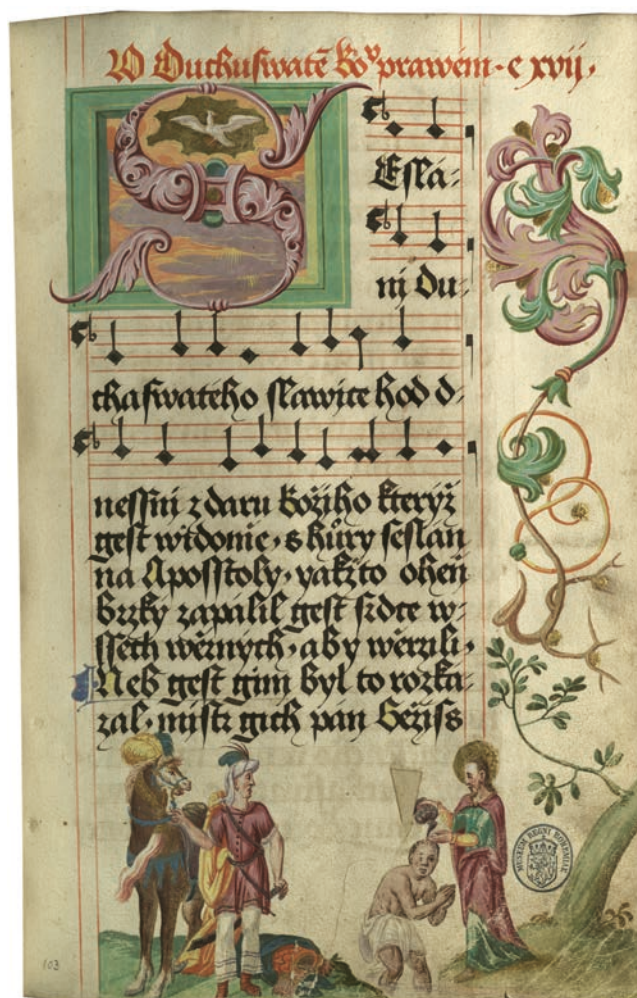 O Duchu swatē Boͮ prawém · C xvij ·
SEsla-
ni du-
cha swateho slawice hod d-
nessni z daru Božiho kterýž
gest widonie, s hůry seslan
na Aposstoly, yakžto oheň
Brzky zapálil gest srdce w-
ssech wěrnych, aby wěrzili,
Neb gest gim Byl to rozka-
zal, mistr gich pán Gežiss
MUSEUM REGNI BOHEMIAE
103